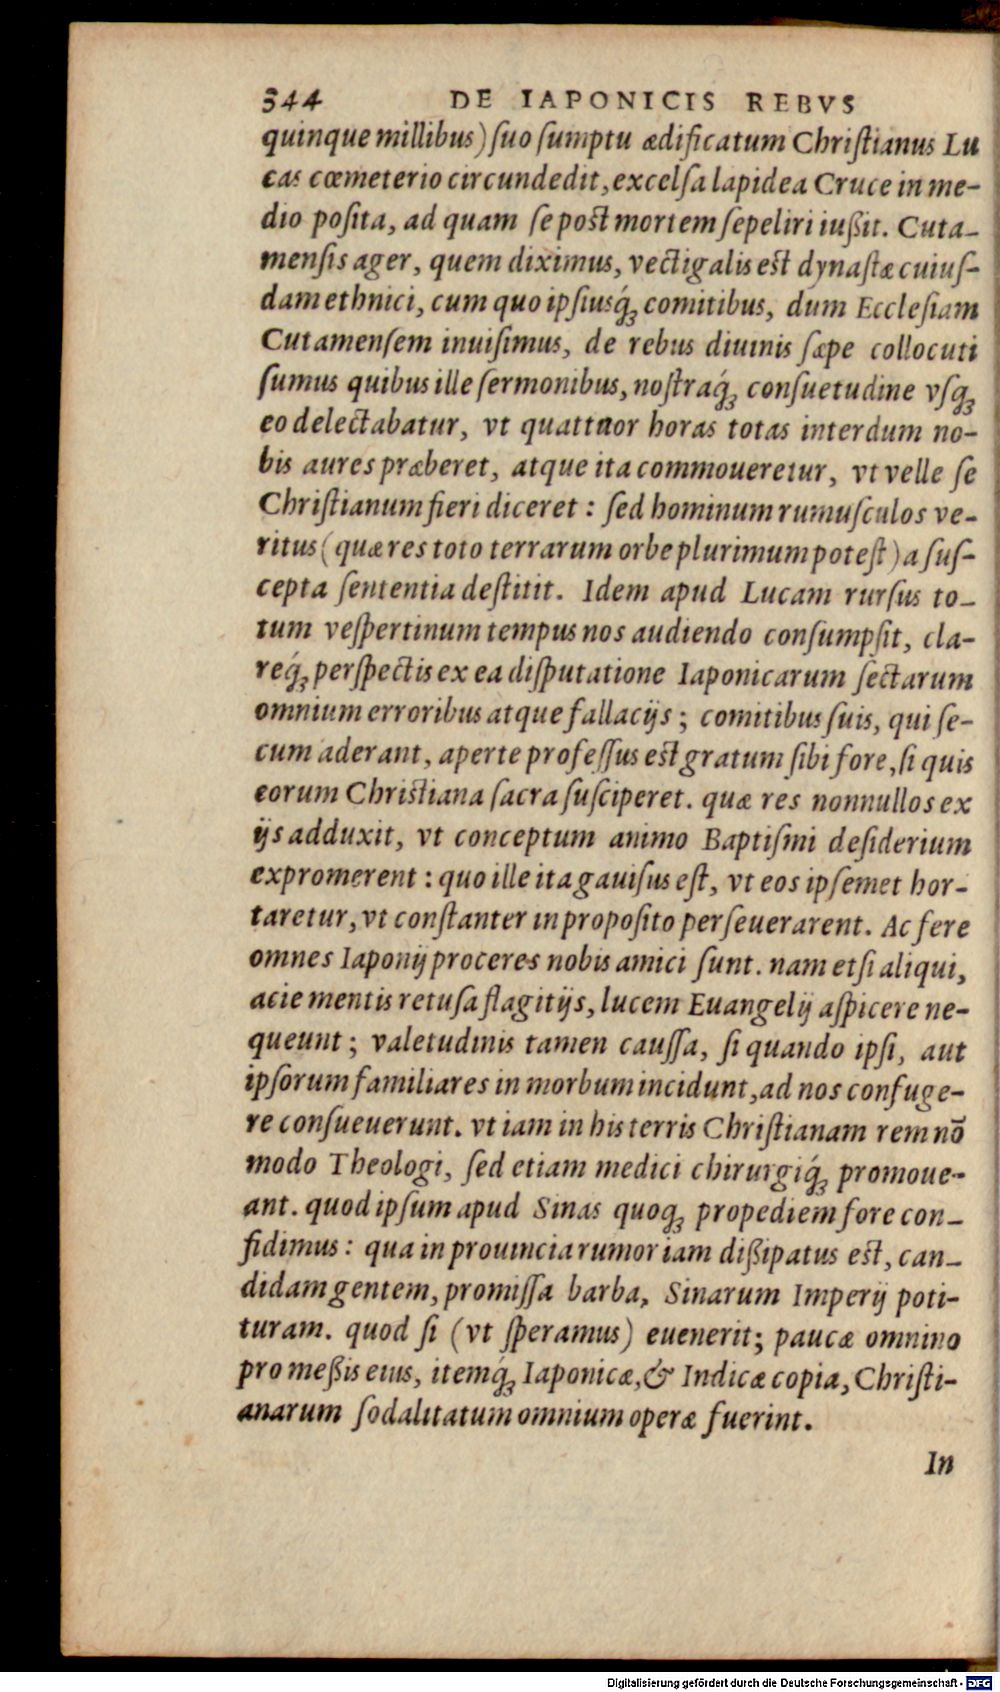 344 DE IAPONICIS REBVS
quinque millibus) suo sumptu ædificatum Christianus Lu
cas cœmeterio circundedit, excelsa lapidea Cruce in me-
dio posita, ad quam se post mortem sepeliri iußit. Cuta-
mensis ager, quem diximus, vectigalis est dynastæ cuius-
dam ethnici, cum quo ipsiusq́; comitibus, dum Ecclesiam
Cutamensem inuisimus, de rebus diuinis sæpe collocuti
sumus quibus ille sermonibus, nostraq́; consuetudine vsq;
eo delectabatur, vt quattuor horas totas interdum no-
bis aures præberet, atque ita commoueretur, vt velle se
Christianum fieri diceret: sed hominum rumusculos ve-
ritus (quæ res toto terrarum orbe plurimum potest) a sus-
cepta sententia destitit. Idem apud Lucam rursus to-
tum vespertinum tempus nos audiendo consumpsit, cla-
req́; perspectis ex ea disputatione Iaponicarum sectarum
omnium erroribus atque fallacijs; comitibus suis, qui se-
cum aderant, aperte professus est gratum sibi fore, si quis
eorum Christiana sacra susciperet. quæ res nonnullos ex
ijs adduxit, vt conceptum animo Baptismi desiderium
expromerent: quo ille ita gauisus est, vt eos ipsemet hor-
taretur, vt constanter in proposito perseuerarent. Ac fere
omnes Iaponij proceres nobis amici sunt. nam etsi aliqui,
acie mentis retusa flagitijs, lucem Euangelij aspicere ne-
queunt; valetudinis tamen caussa, si quando ipsi, aut
ipsorum familiares in morbum incidunt, ad nos confuge-
re consueuerunt. vt iam in his terris Christianam rem nō
modo Theologi, sed etiam medici chirurgiq́; promoue-
ant. quod ipsum apud Sinas quoq; propediem fore con-
fidimus: qua in prouincia rumor iam dißipatus est, can-
didam gentem, promissa barba, Sinarum Imperij poti-
turam. quod si (vt speramus) euenerit; paucæ omnino
pro meßis eius, itemq́; Iaponicæ, & Indicæ copia, Christi-
anarum sodalitatum omnium operæ fuerint.
In
Digitalisierung gefördert durch die Deutsche Forschungsgemeinschaft - DFG